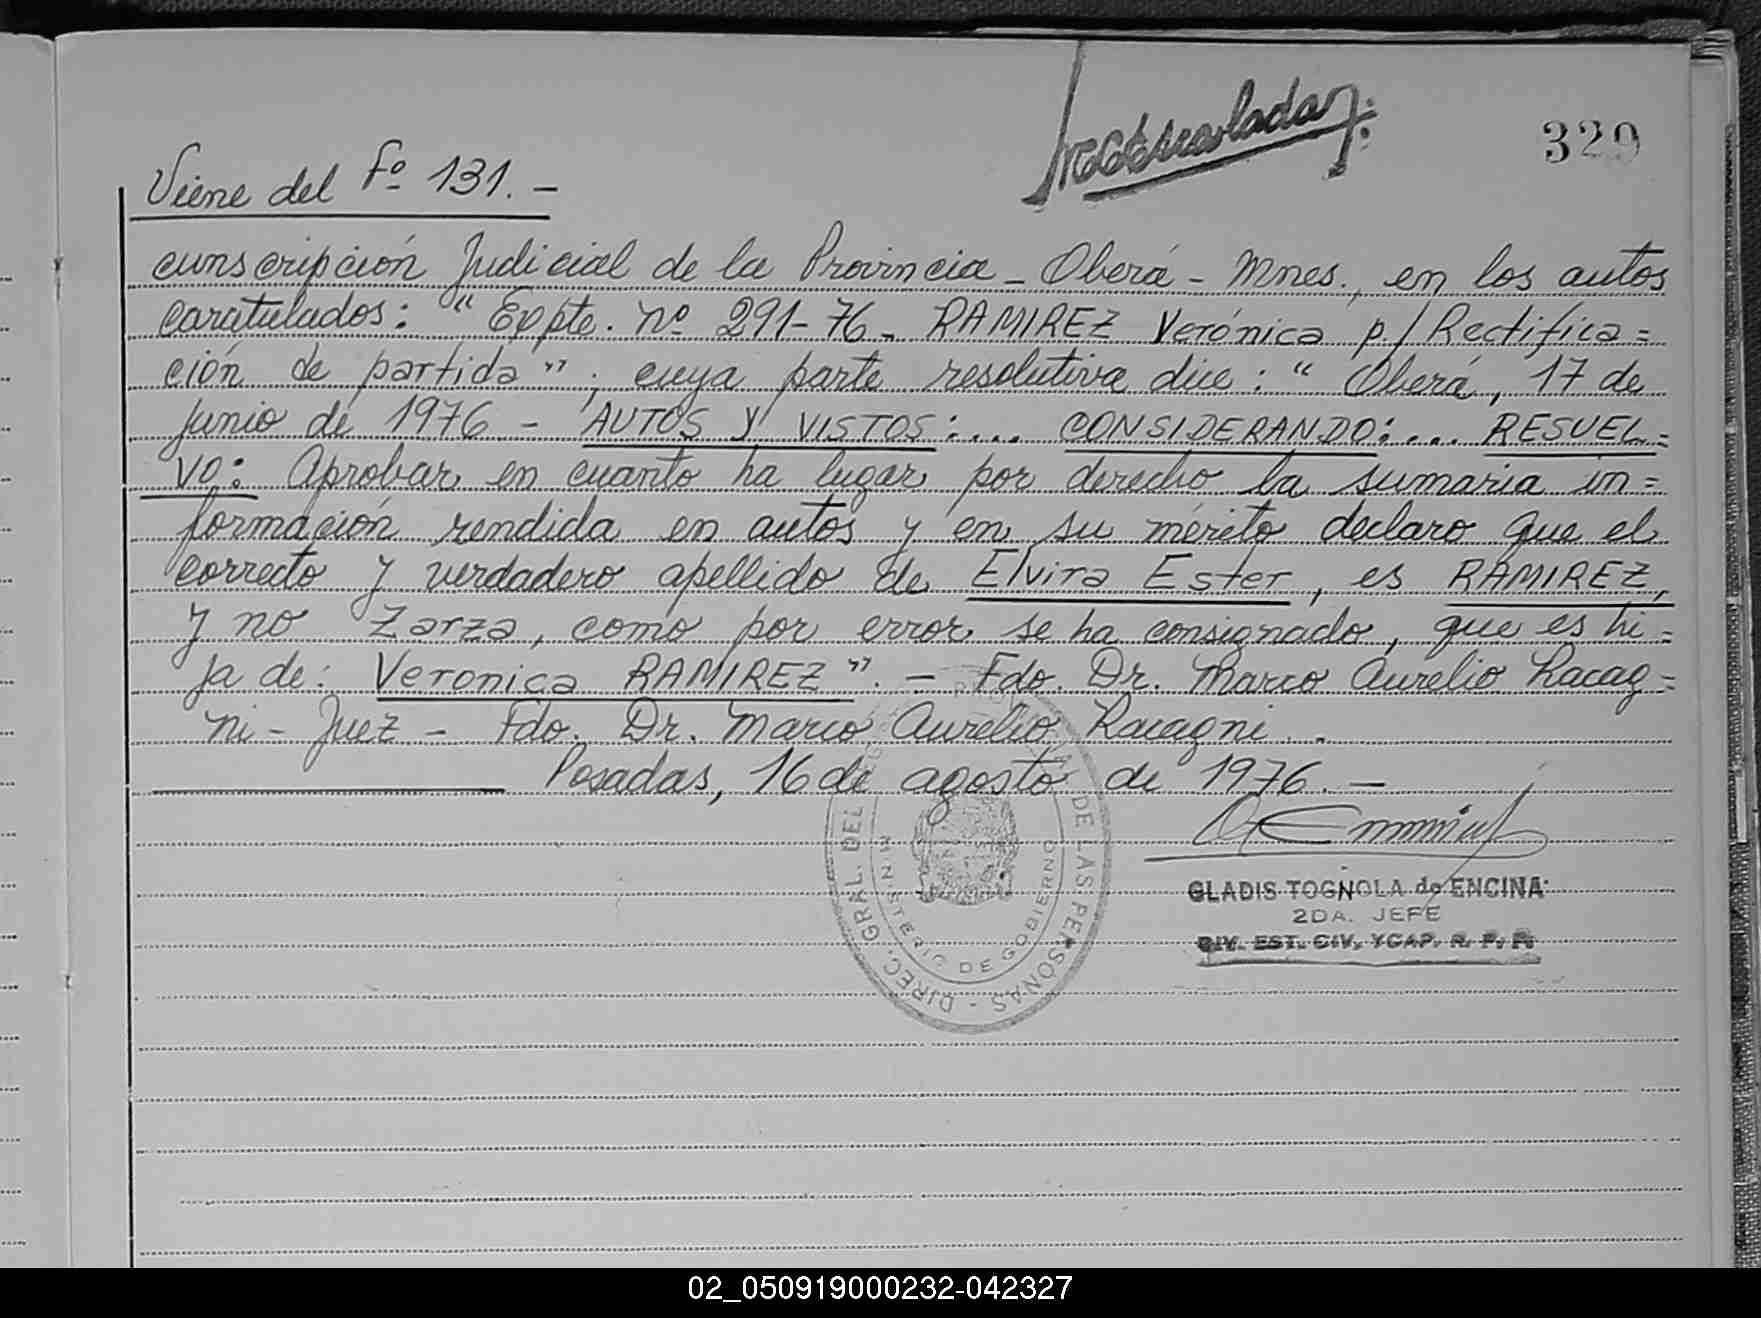 329
Viene del Fº 131.-
cunscripción Judicial de la Provincia - Oberá - Mnes., en los autos
caratulados: "Expte. nº 291-76 - RAMIREZ Verónica p/Rectifica=
ción de partida"; cuya parte resolutiva dice: "Oberá, 17 de
junio de 1976 - AUTOS Y VISTOS:... CONSIDERANDO:... RESUEL=
VO: Aprobar en cuanto ha lugar por derecho la sumaria in=
formación rendida en autos y en su mérito declaro que el
correcto y verdadero apellido de Elvira Ester, es RAMIREZ,
y no Zarza, como por error se ha consignado, que es hi=
ja de: Veronica RAMIREZ". - Fdo. Dr. Marco Aurelio Racag=
ni - Juez - Fdo. Dr. Marco Aurelio Racagni..
Posadas, 16 de agosto de 1976.-
DIREC. GRAL. DEL DE LAS PERSONAS -
MINISTERIO DE GOBIERNO
GLADIS TOGNOLA de ENCINA
2DA. JEFE
DIV. EST. CIV. Y CAP. R. P. P.
02_050919000232-042327